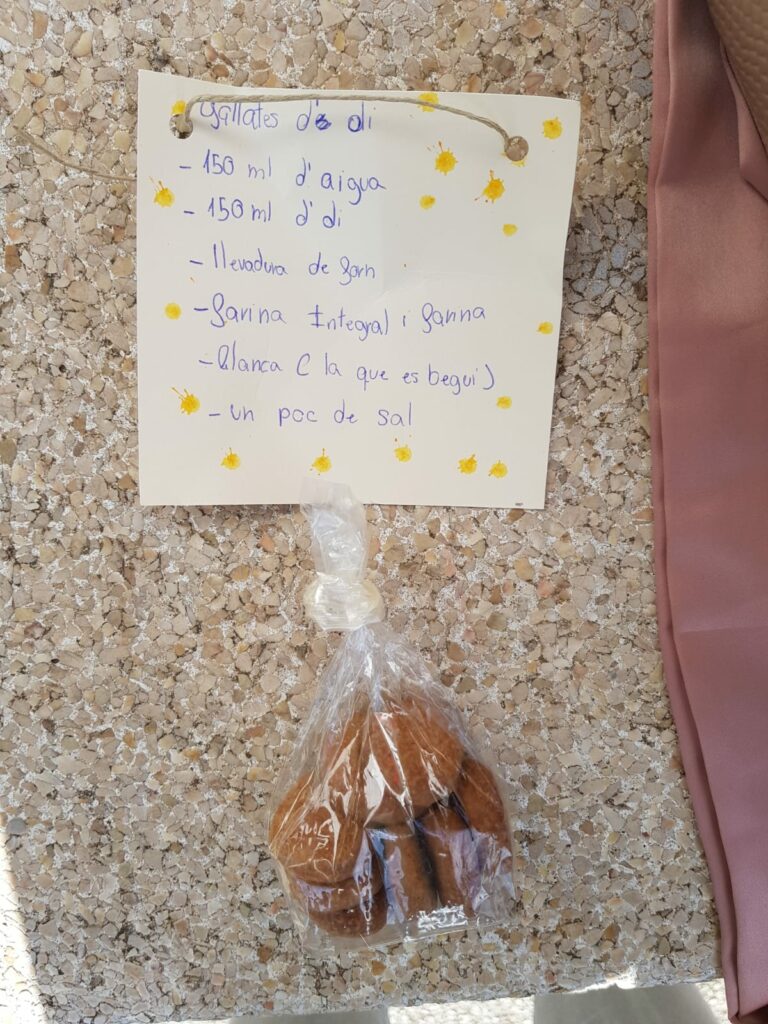 gallates d'e di
- 150 ml d'aigua
- 150 ml d'di
- llevadura de forn
- farina Integral i farina
- Blanca ( la que es begui )
- un poc de sal